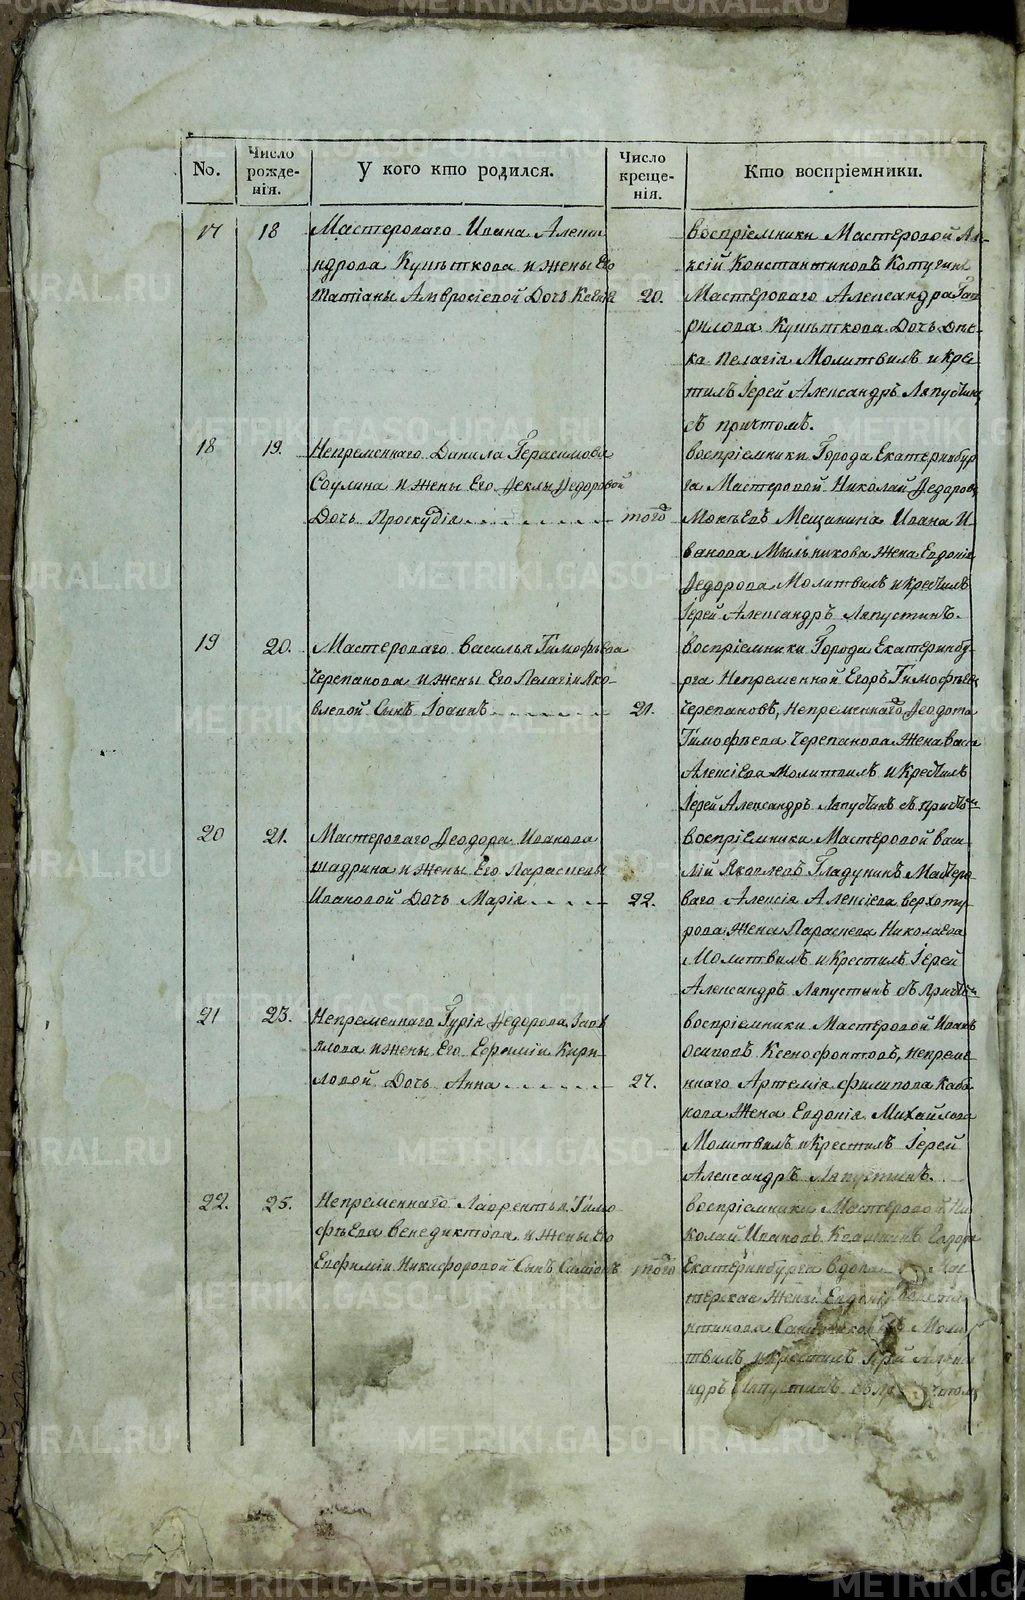 No.
Число рожде-нія.
У кого кто родился.
Число креще-нія.
Кто воспріемники.
17
18
Мастероваго Ивана Алекса
ндрова Кушъткова и жены Его
Татіаны Амвросіевой Дочь Ксенія
20.
воспріемники Мастеровой Ал-
ѣксій Константиновъ Котугинъ
Мастероваго Александра Гав
рилова Кушъткова Дочь Дѣв-
ка Пелагія Молитвилъ и кре-
тилъ Іерей Александръ Ляпустинъ
съ причтомъ.
18
19.
Непременнаго Данила Герасимова
Соулина и жены Его Ѳеклы Ѳедоровой
Дочь Проскудія
того
воспріемники Города Екатеринбур
га Мастеровой Николай Ѳедоровъ
Мокѣевъ Мещанина Ивана И-
ванова Мыльникова жена Евдокія
Ѳедорова Молитвилъ и крестилъ
Іерей Александръ Ляпустинъ.
19
20.
Мастероваго Василья Тимофѣева
Черепанова и жены Его Пелагіи Яко-
влевой Сынъ Іоаннъ
21.
воспріемники Города Екатеринбу-
рга Непременной Егоръ Тимофѣевъ
Черепановъ, Непременнаго Ѳеодота
Тимофѣева Черепанова Жена Васса
Алексіева Молитвилъ и Крестилъ
Іерей Александръ Ляпустинъ съ причтом
20
21.
Мастероваго Ѳеодора Иванова
шадрина и жены Его Параскевы
Ивановой Дочь Марія
22.
воспріемники Мастеровой Васи
лій Яковлевъ Гладунинъ Мастеро-
ваго Алексія Алексіева верхоту-
рова Жена Параскева Николаева
Молитвилъ и Крестилъ Іерей
Александръ Ляпустинъ съ Причтом
21
23.
Непременнаго Гурія Ѳедорова
лова и жены Его Ефиміи Кири
ловой Дочь Анна
27.
воспріемники Мастеровой Иванъ
Осиповъ Ксенофонтовъ, непреме-
ннаго Артемія Филипова Каба
кова Жена Евдокія Михайлова
Молитвилъ и Крестилъ Іерей
Александръ Ляпустинъ.
22.
25.
Непременнаго Лаврентья Тимо
фѣева Венедиктова и Жены Его
Евфиміи Никифоровой Сынъ Симіонъ
того
воспріемники Мастеровой Ни
колай Ивановъ Города
Екатеринбурга вдова Мас
терская Жена Евдокі
нтинова Моли
твилъ и Крестилъ Іерей Алекса
ндръ Ляпустинъ съ причтомъ
METRIKI.GASO-URAL.RU